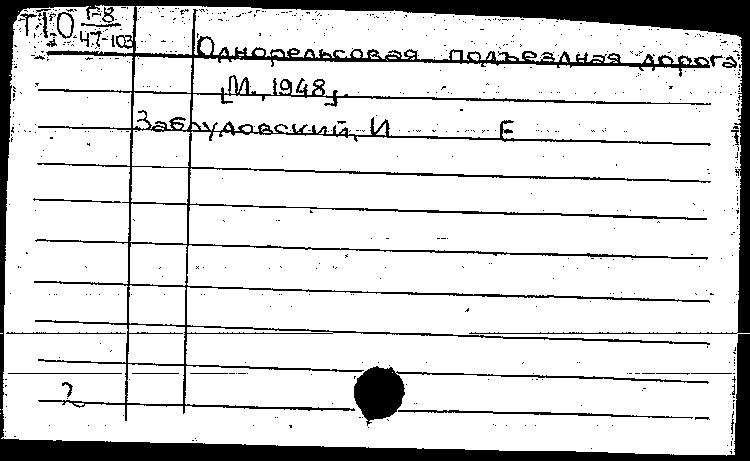 Т10 F8
47-103
Однорельсовая подъездная дорога
[М., 1948].
Заблудовский, И Е
2